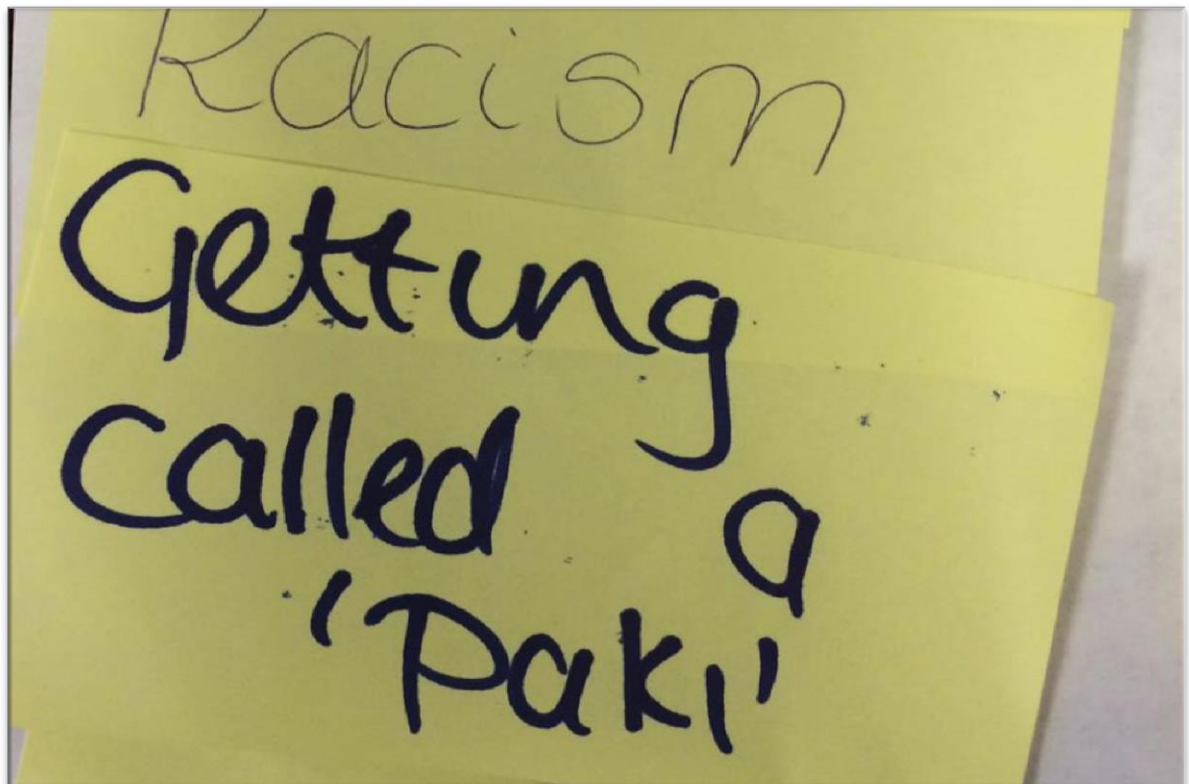 Racism
Getting
called a
'Paki'